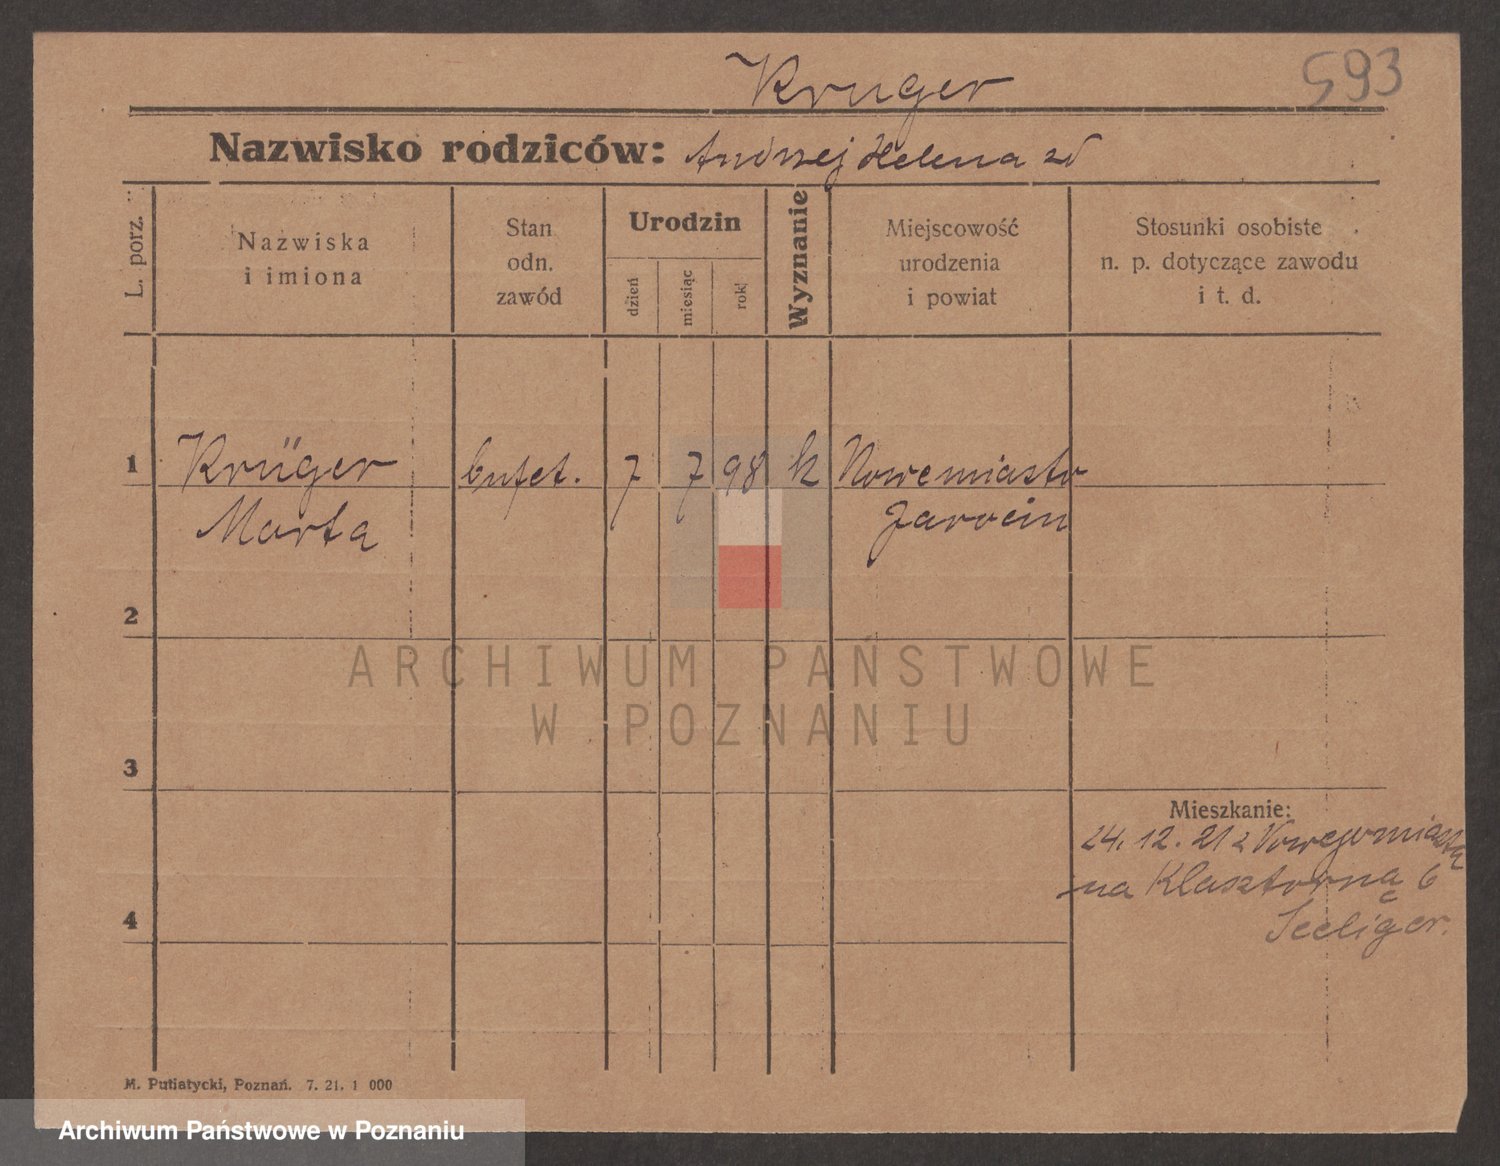 Kruger
593
Nazwisko rodziców: Andrzej Helena zd
L. porz.
Nazwiska
i imiona
Stan
odn.
zawód
Urodzin
dzień
miesiąc
rok
Wyznanie
Miejscowość
urodzenia
i powiat
Stosunki osobiste
n. p. dotyczące zawodu
i t. d.
1 Krüger bufet. 7 7 98 k Nowemiasto
Marta Jarocin
2
ARCHIWUM PAŃSTWOWE
W POZNANIU
3
Mieszkanie:
24. 12. 21 z Nowegomiasta
na Klasztorną 6
Seeliger.
4
M. Putiatycki, Poznań. 7. 21. 1 000
Archiwum Państwowe w Poznaniu